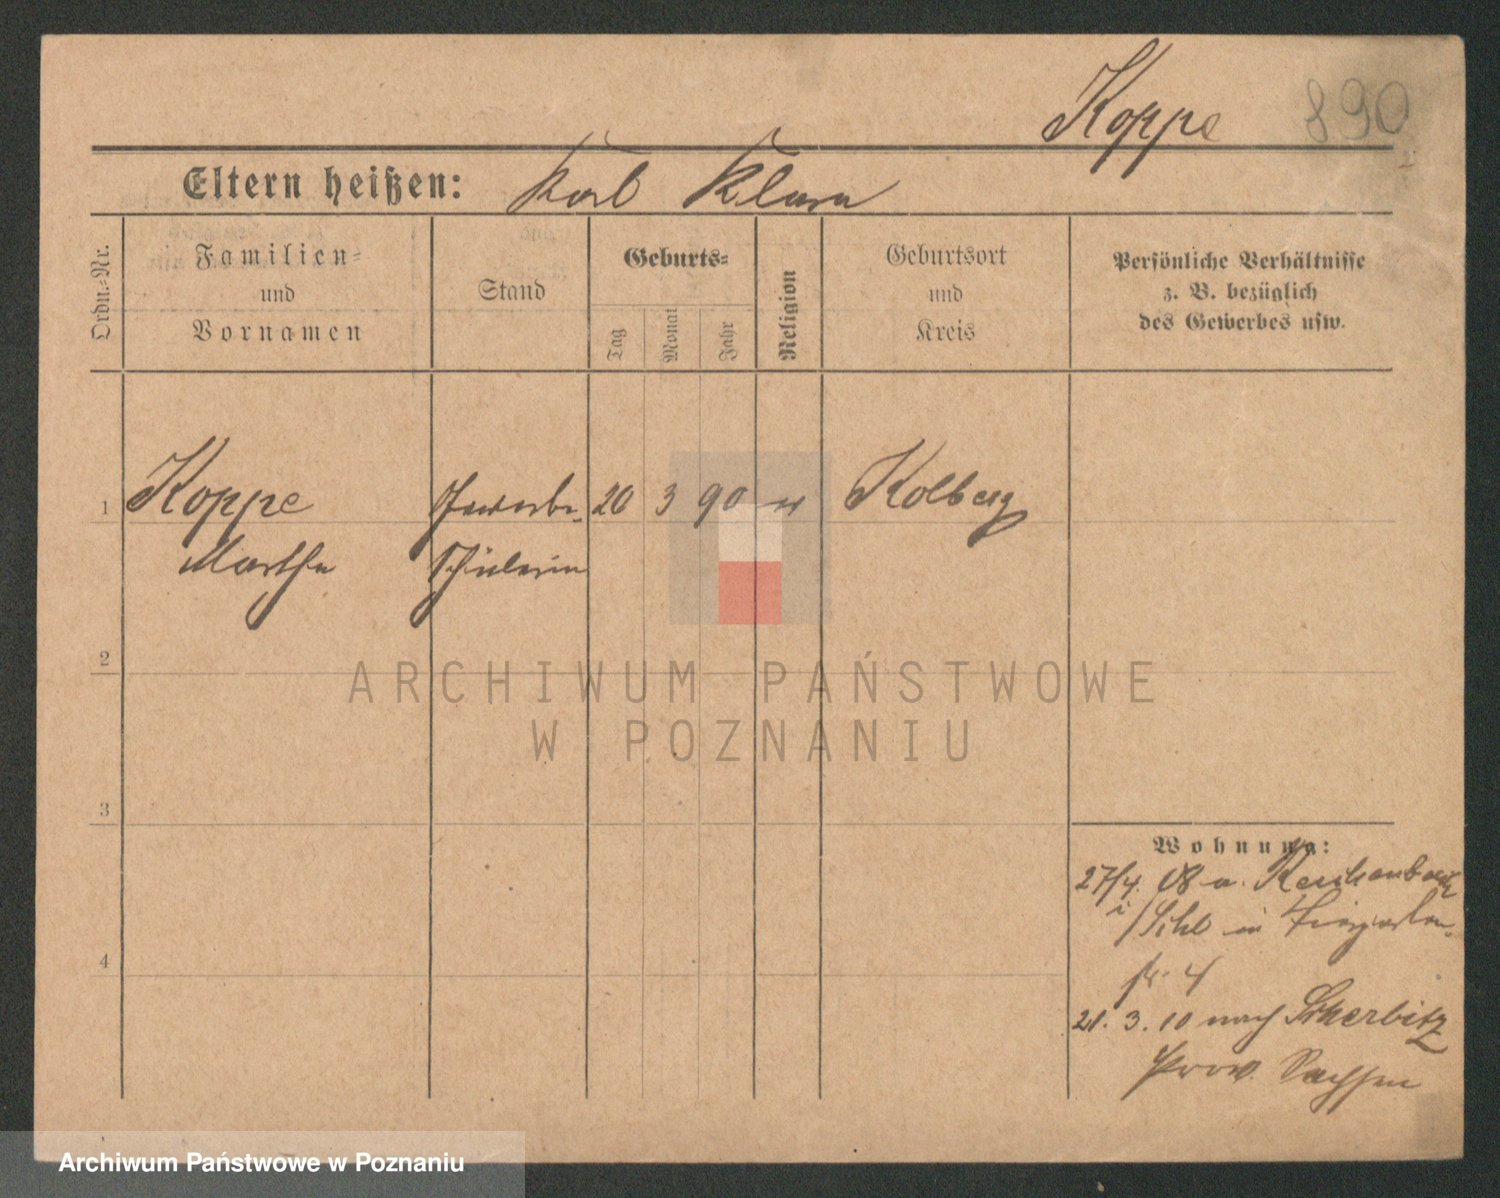 Koppe 890
Eltern heißen: Karl Klara
Ordn.-Nr.
Familien-
und
Vornamen
Stand
Geburts-
Tag
Monat
Jahr
Religion
Geburtsort
und
Kreis
Persönliche Verhältnisse
z. B. bezüglich
des Gewerbes usw.
1 Koppe Gewerbe- 20 3 90 Kolberg
Martha Schülerin
2
3
4
Wohnung:
27/4. 08 a. Reichenbach
i/Schl in Tiergarten-
str. 4
21. 3. 10 nach Skerbitz
Prov. Sachsen
ARCHIWUM PAŃSTWOWE
W POZNANIU
Archiwum Państwowe w Poznaniu